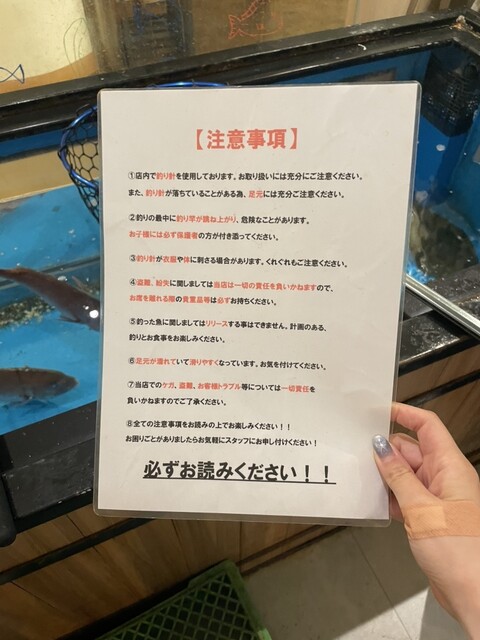 【注意事項】
①店内で釣り針を使用しております。お取り扱いには充分にご注意ください。
また、釣り針が落ちていることがある為、足元には充分ご注意ください。
②釣りの最中に釣り竿が跳ね上がり、危険なことがあります。
お子様には必ず保護者の方が付き添ってください。
③釣り針が衣服や体に刺さる場合があります。くれぐれもご注意ください。
④盗難、紛失に関しましては当店は一切の責任を負いかねますので、
お席を離れる際の貴重品等は必ずお持ちください。
⑤釣った魚に関しましてはリリースする事はできません。計画のある、
釣りとお食事をお楽しみください。
⑥足元が濡れていて滑りやすくなっています。お気を付けてください。
⑦当店でのケガ、盗難、お客様トラブル等については一切責任を
負いかねますのでご了承ください。
⑧全ての注意事項をお読みの上でお楽しみください！！
お困りごとがありましたらお気軽にスタッフにお申し付けください！
必ずお読みください！！